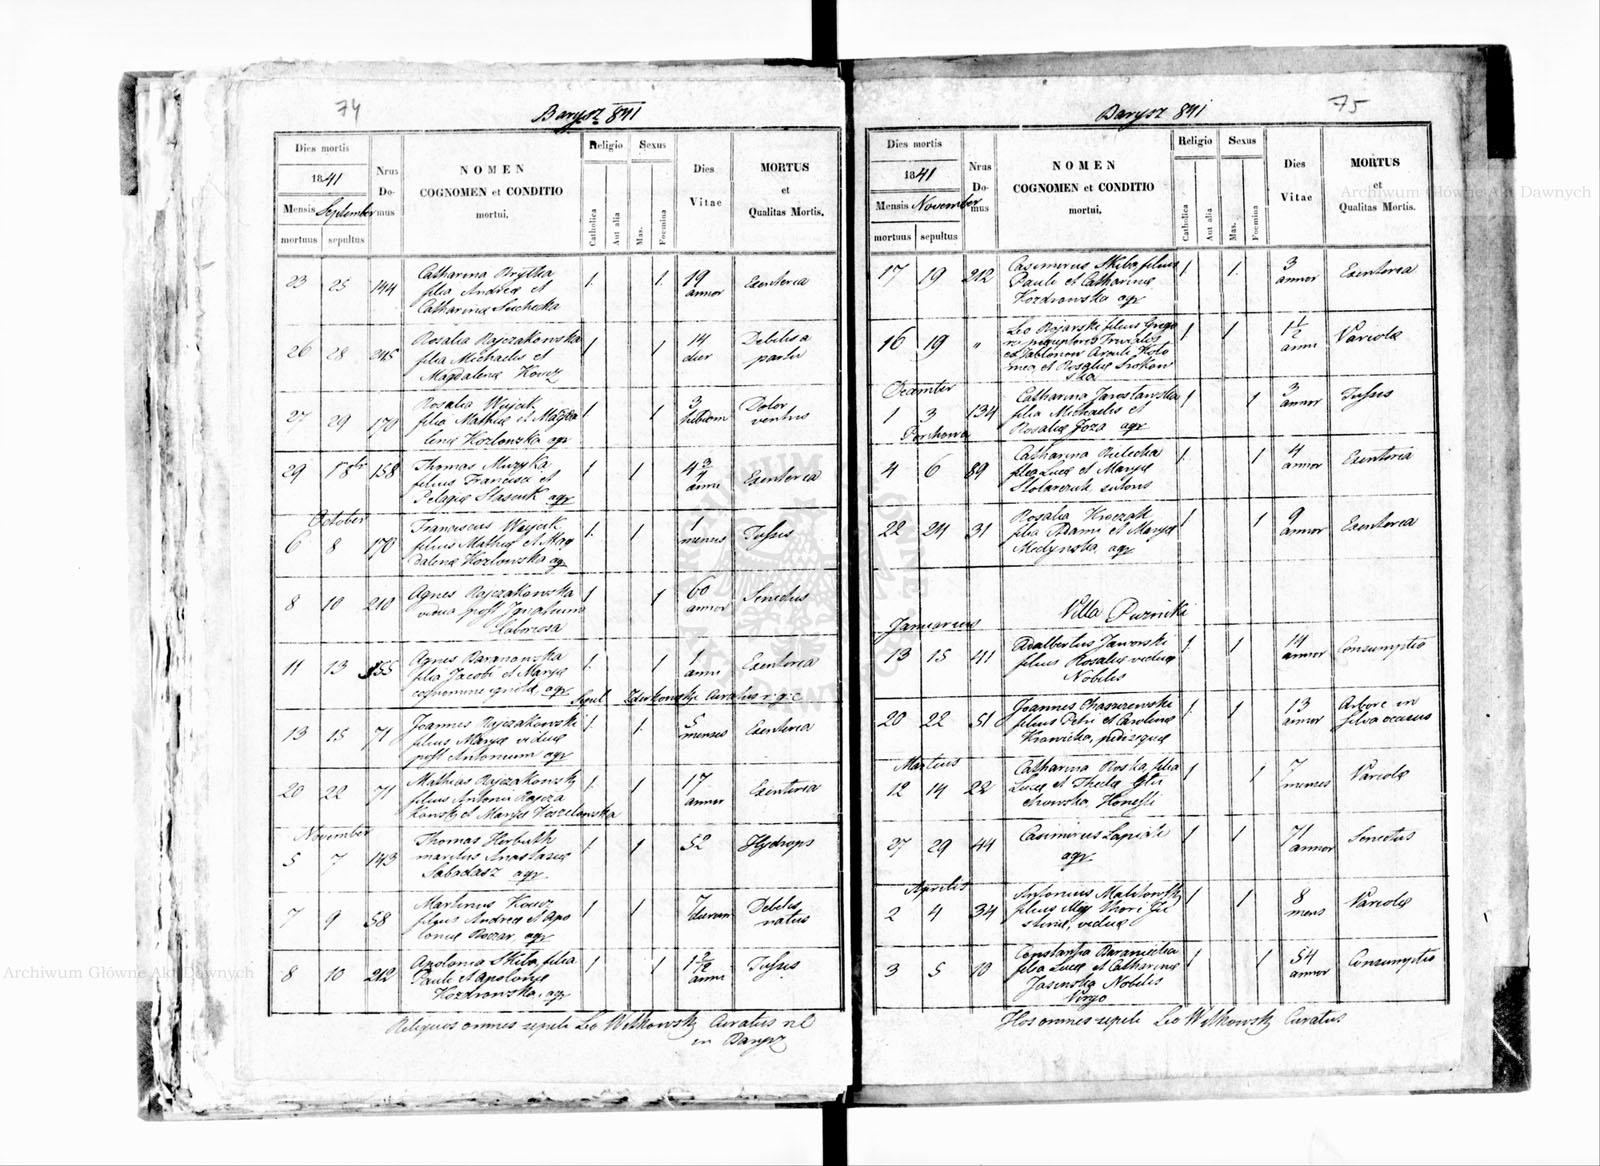 74
Barysz 841
Dies mortis
1841
Mensis September
mortuus sepultus
Nrus Domus
NOMEN
COGNOMEN et CONDITIO
mortui.
Religio
Catholica
Aut alia
Sexus
Mas.
Foemina
Dies
Vitae
MORTUS
et
Qualitas Mortis.
23 25 144 Catharina Brytka 1 1 19 Exenteria
filia Andreæ et annor
Catharinæ Suchecka
26 28 245 Rosalia Rajczakowska 1 1 14 Debilis a
filia Michaelis et dier partu
Magdalenæ Koucz
27 29 170 Rosalia Wojcik 1 1 3 Dolor
filia Mathiæ et Magda ventris
lenæ Kozlowska agr
29 1 8br 158 Thomas Muzyka 1 1 4 3/4 Exenteria
filius Francisci et anni
Pelagiæ Stasiuk agr
October
6 8 170 Franciscus Wojcik 1 1 1 Tussis
filius Mathiæ et Mag mensis
dalenæ Kozlowska agr
8 10 210 Agnes Rajczakowska 1 1 60 Senectus
vidua post Ignatium annor
laboriosa
11 13 155 Agnes Baranowska 1 1 1 Exenteria
filia Jacobi et Mariæ anni
cognomine ignota, agr
Sepel. Zderkowski Curatus r. g. c.
13 15 71 Joannes Rajczakowski 1 1 5 Exenteria
filius Mariæ viduæ menses
post Antonium agr
20 22 71 Mathias Rajczakowsky 1 1 17 Exenteria
filius Antonii Rajcza annor
kowsky et Mariæ Koszelowska
November
5 7 143 Thomas Herbuth 1 1 52 Hydrops
maritus Anastasiæ
Sabadasz agr
7 9 58 Martinus Koucz 1 1 7 Debilis
filius Andreæ et Apo dierum natus
loniæ Roczar agr
8 10 212 Apolonia Skiba filia 1 1 1 3/12 Tussis
Pauli et Apoloniæ anni
Kozdrowska, agr
Reliquos omnes sepeli Leo Witkowsky Curatus r.l.
in Barysz
75
Barysz 841
Dies mortis
1841
Mensis November
mortuus sepultus
Nrus Domus
NOMEN
COGNOMEN et CONDITIO
mortui.
Religio
Catholica
Aut alia
Sexus
Mas.
Foemina
Dies
Vitae
MORTUS
et
Qualitas Mortis.
17 19 212 Casimirus Skiba filius 1 1 3 Exenteria
Pauli et Catharinæ annor
Kozdrowska agr
16 19 " Leo Bojarski filius Grego 1 1 1 1/2 Variolæ
rii anni
et Jablonow Circuli Kolo
mea et Rosaliæ Srokow
ska
December
1 3 134 Catharina Jaroslawska 1 1 3 Tussis
filia Michaelis et annor
Rosaliæ Joza agr
Porchowa
4 6 89 Catharina Bielecka 1 1 4 Exenteria
filia Lucæ et Mariæ annor
Stolarczuk sutoris
22 24 31 Rosalia Kraczak 1 1 9 Exenteria
filia Adami et Mariæ annor
Medynska, agr
Villa Puzniki
Januarius
13 15 41 Adalbertus Jaworski 1 1 14 Consumptio
filius Rosaliæ viduæ annor
Nobilis
20 22 51 Joannes Chaszczewski 1 1 13 Arbore in
filius Petri et Carolinæ annor silva occisus
Krawicka, pedisequæ
Martius
12 14 22 Catharina Roska, filia 1 1 7 Variolæ
Lucæ et Theclæ menses
chowska, Honesti
27 29 44 Casimirus Lapicki 1 1 71 Senectus
agr. annor
Aprilis
2 4 34 Antonius Malikowsky 1 1 8 Variolæ
filius mens
viduæ
3 5 10 Constantia Baraniecka 1 1 54 Consumptio
filia Lucæ et Catharinæ annor
Jasinska Nobilis
Virgo
Hos omnes sepeli Leo Witkowsky Curatus
Archiwum Główne Akt Dawnych
Archiwum Główne Akt Dawnych